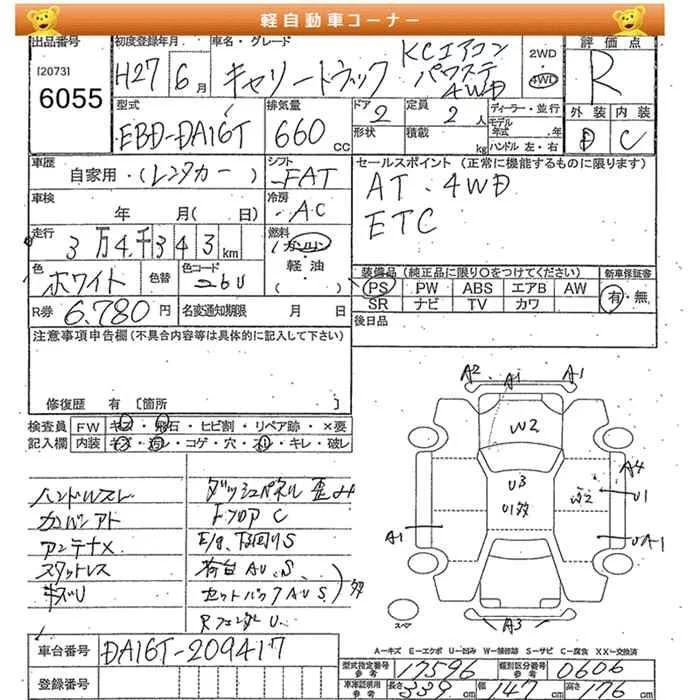 軽自動車コーナー
出品番号 初度登録年月 車名・グレード 2WD 4WD 評価点
[2073] 6055 H27 6月 キャリートラック KCエアコン パワステ 4WD R
型式 排気量 ドア 2 定員 2人 ディーラー・並行 外装 内装
EBD-DA16T 660cc 形状 積載 kg モデル年式 年 D C
ハンドル 左・右
車歴 自家用・(レンタカー) シフト FAT セールスポイント (正常に機能するものに限ります)
車検 年 月(日) 冷房 AC AT・4WD
ETC
走行 3万4千343km 燃料 (ガソリン) 軽・油 ( )
色 ホワイト 色替 色コード 26U 装備品 (純正品に限り○をつけてください) 新車保証書
PS PW ABS エアB AW 有・無
SR ナビ TV カワ
R券 6,780円 名変通知期限 月 日 後日品
注意事項申告欄(不具合内容等は具体的に記入して下さい)
修復歴 有 [箇所 ]
検査員 FW キズ・飛石・ヒビ割・リペア跡・×要
記入欄 内装 キズ・汚レ・コゲ・穴・スリ・キレ・破レ
A2 A1 A1
W2
U3
U1多
A4
U1
UA1
A1
A3
スペア
ハンドルスレ ダッシュパネル 歪み
カバンアト FフロアC
アンテナX E/g、下回りS
スタットレス 荷台AU、S
キズU セットバックAUS 多
RフェンダーU
A-キズ E-エクボ U-凹み W-補修跡 S-サビ C-腐食 XX-交換済
車台番号 DA16T-209417
登録番号
型式指定番号 参考 17596 類別区分番号 参考 0606
車庫証明用 参考 長さ 339cm 幅 147cm 高さ 176cm